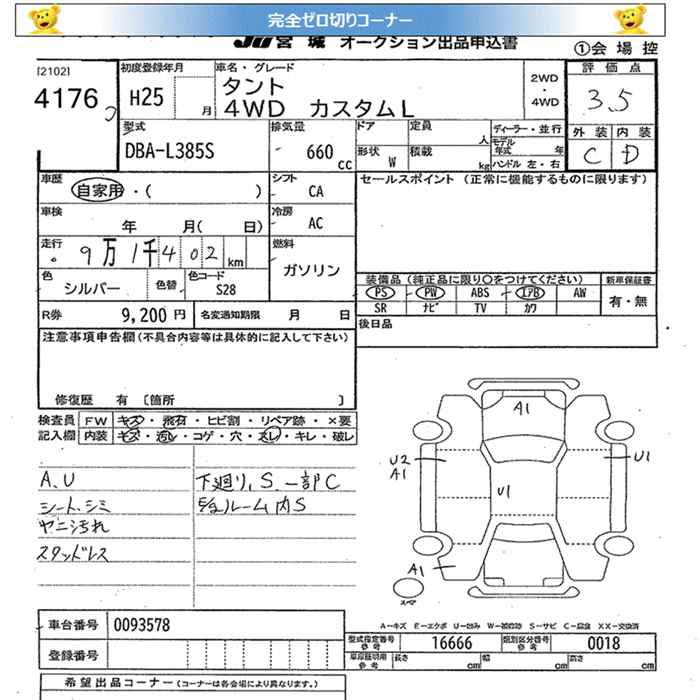 完全ゼロ切りコーナー
JU宮城 オークション出品申込書
①会場控
[2102]
4176
初度登録年月
H25
月
車名・グレード
タント
4WD カスタムL
2WD
・
4WD
評価点
3.5
外装 内装
C D
型式
DBA-L385S
排気量
660
cc
ドア
定員
人
形状
W
積載
kg
ディーラー・並行
モデル年式 年
ハンドル 左・右
車歴
自家用・( )
シフト
CA
セールスポイント (正常に機能するものに限ります)
車検
年 月( 日)
冷房
AC
走行
9万1千402 km
燃料
ガソリン
色
シルバー
色替
色コード
S28
装備品 (純正品に限り○をつけてください)
新車保証書
PS PW ABS エアB AW
SR ナビ TV カワ
有・無
R券
9,200 円
名変通知期限 月 日
後日品
注意事項申告欄(不具合内容等は具体的に記入して下さい)
修復歴 有 〔箇所 〕
検査員 FW キズ・飛石・ヒビ割・リペア跡・×要
記入欄 内装 キズ・汚レ・コゲ・穴・スレ・キレ・破レ
A、U
シート、シミ
ヤニ汚れ
スタッドレス
下廻り、S、一部C
ルーム内S
A1
U2
A1
U1
U1
A1
スペア
A-キズ E-エクボ U-凹み W-補修跡 S-サビ C-腐食 XX-交換済
車台番号
0093578
登録番号
型式指定番号
参考
16666
類別区分番号
参考
0018
参考
長さ cm
幅 cm
高さ cm
希望出品コーナー (コーナーは各会場により異なります。)